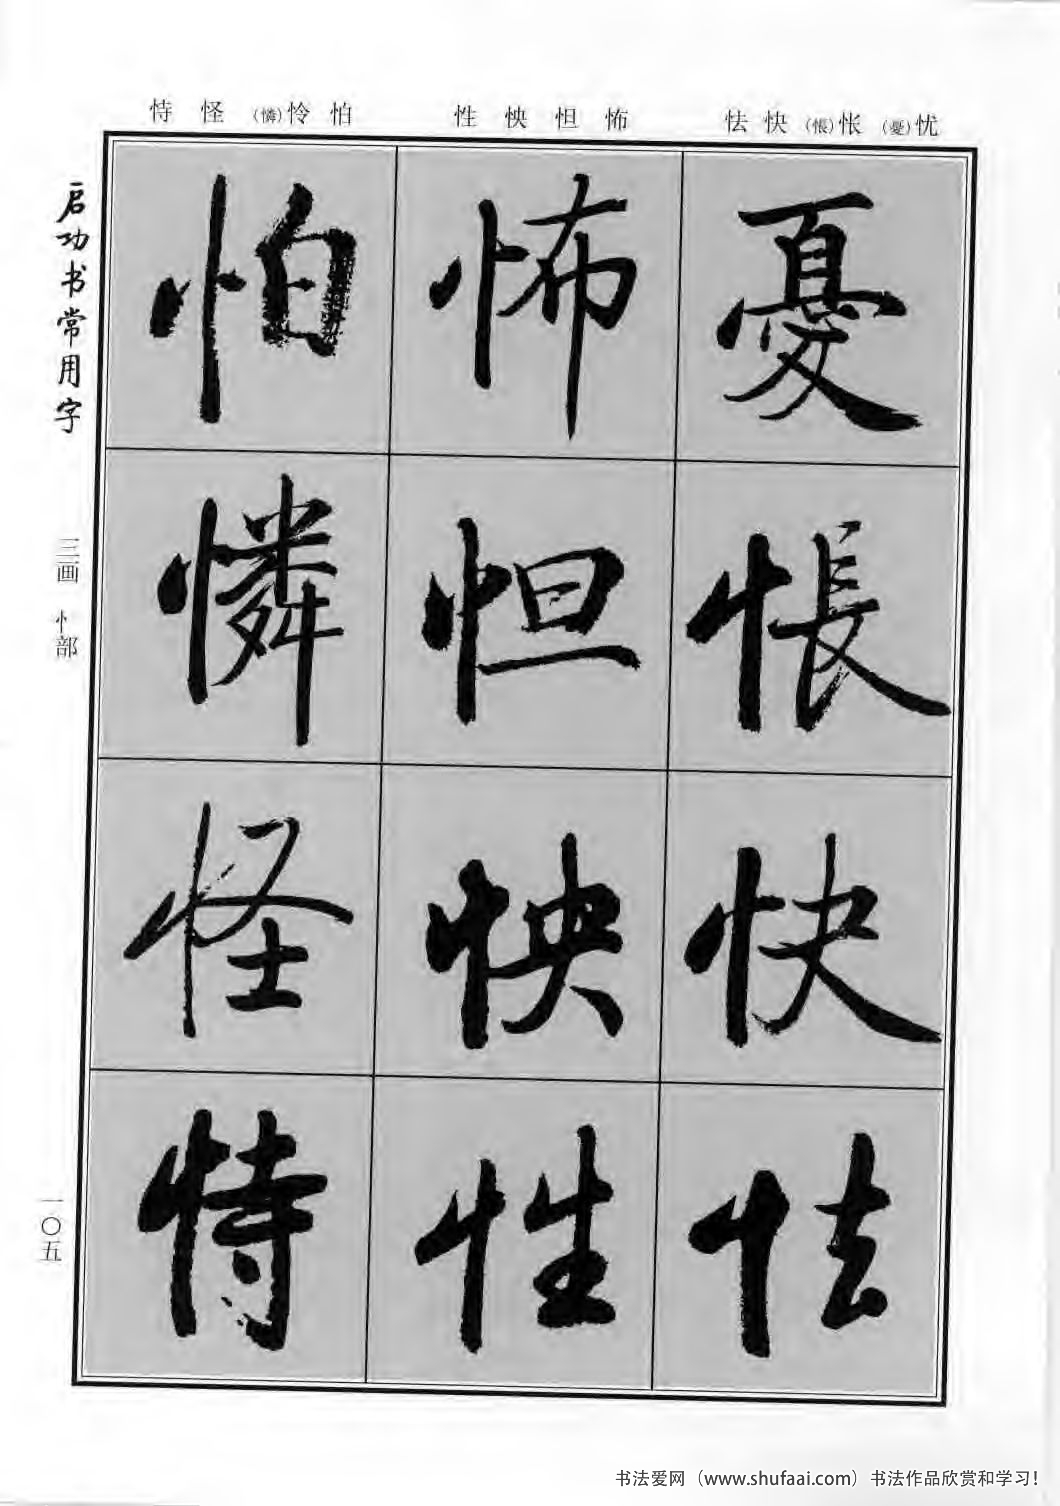 忧(憂) 怅(悵) 快 怯
怖 怛 怏 性
怕 怜(憐) 怪 恃
启功书常用字
三画 忄部
一〇五
憂 悵 快 怯
怖 怛 怏 性
怕 憐 怪 恃
书法爱网（www.shufaai.com）书法作品欣赏和学习！